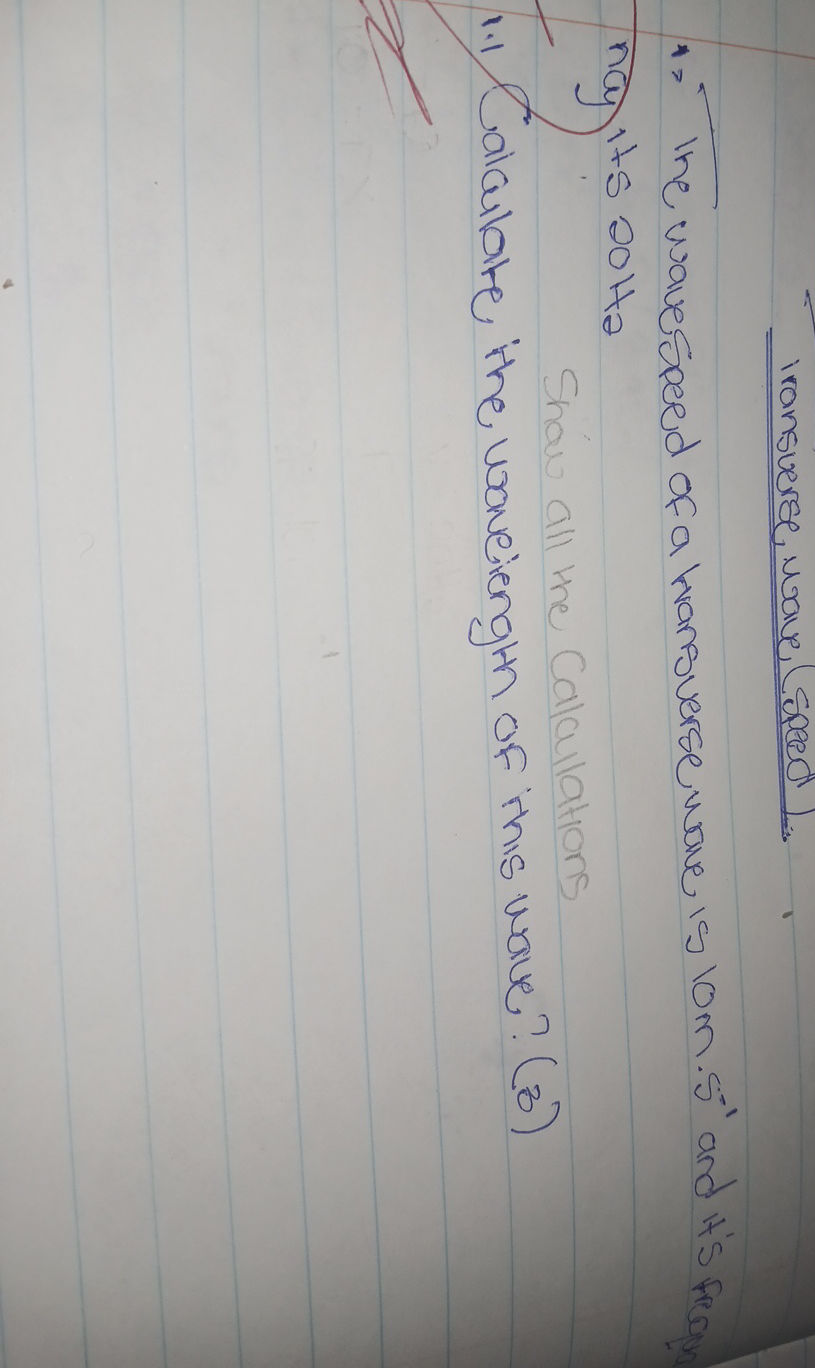 Transverse wave (speed)
1. The wave speed of a transverse wave is 10m.s⁻¹ and it's freque
ncy its 20Hz
Show all the Calculations
1.1 Calculate the wavelength of this wave? (3)